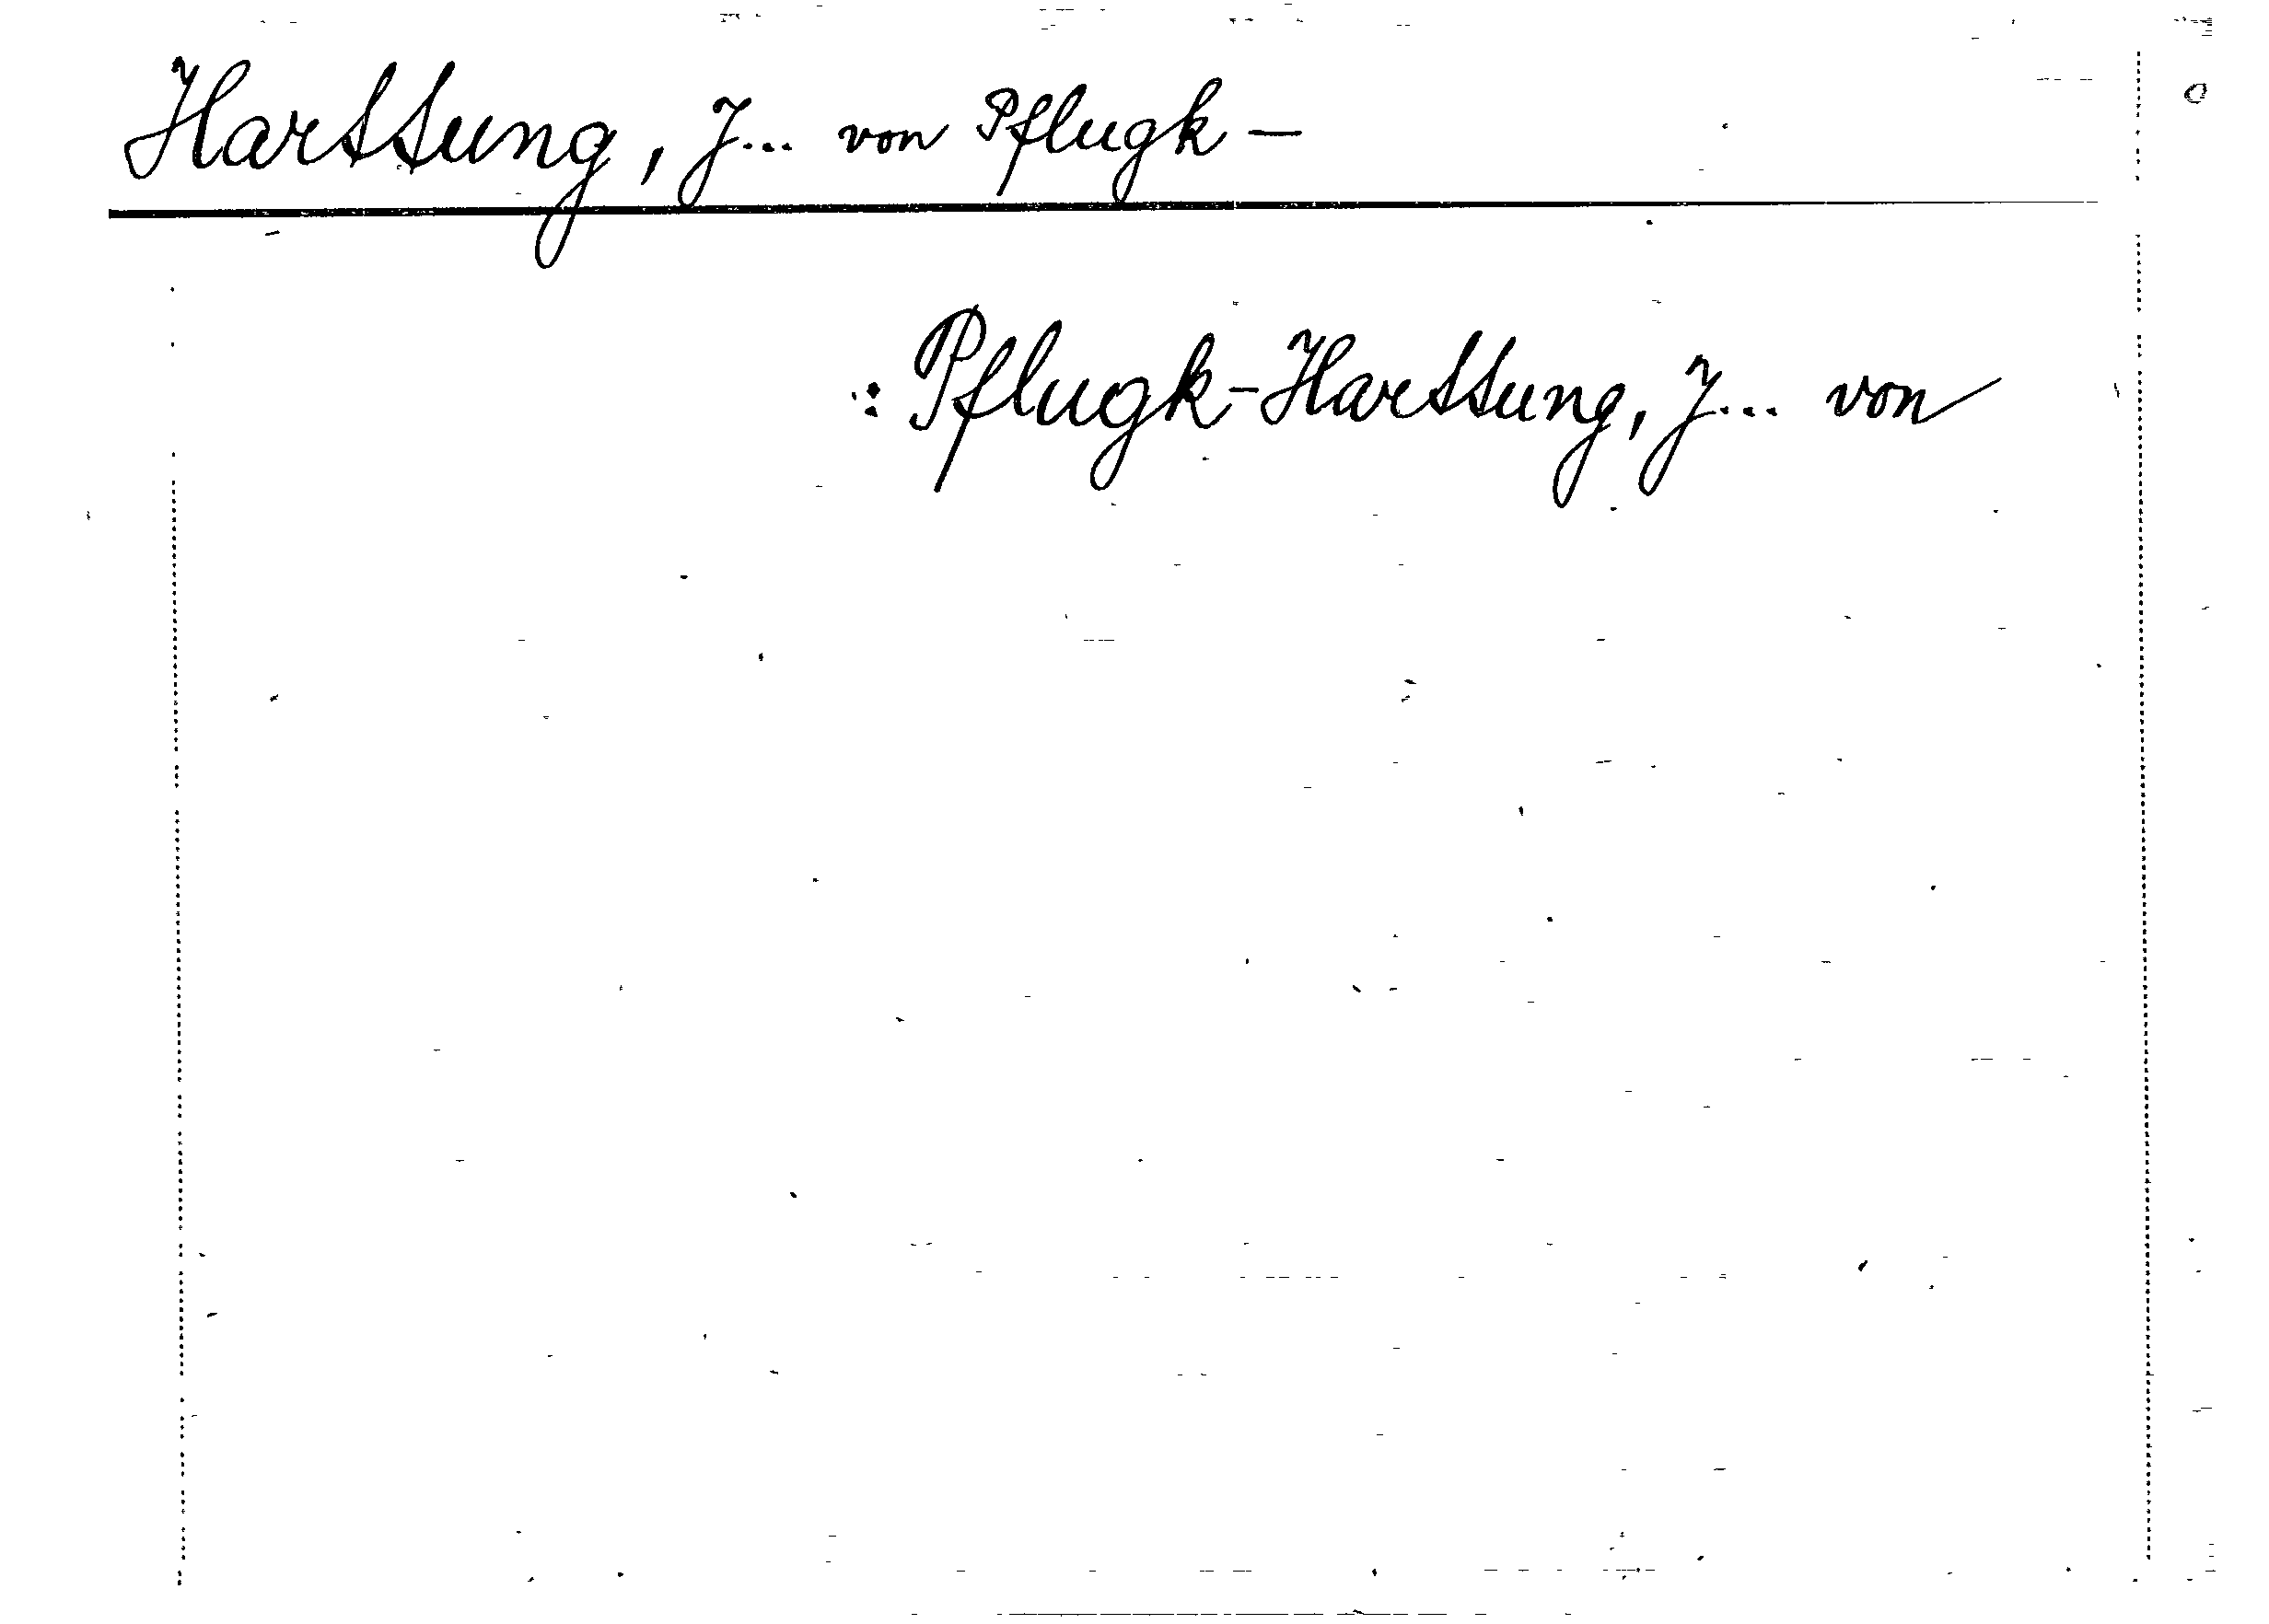 Harttung, J... von Pflugk-
: Pflugk-Harttung, J... von